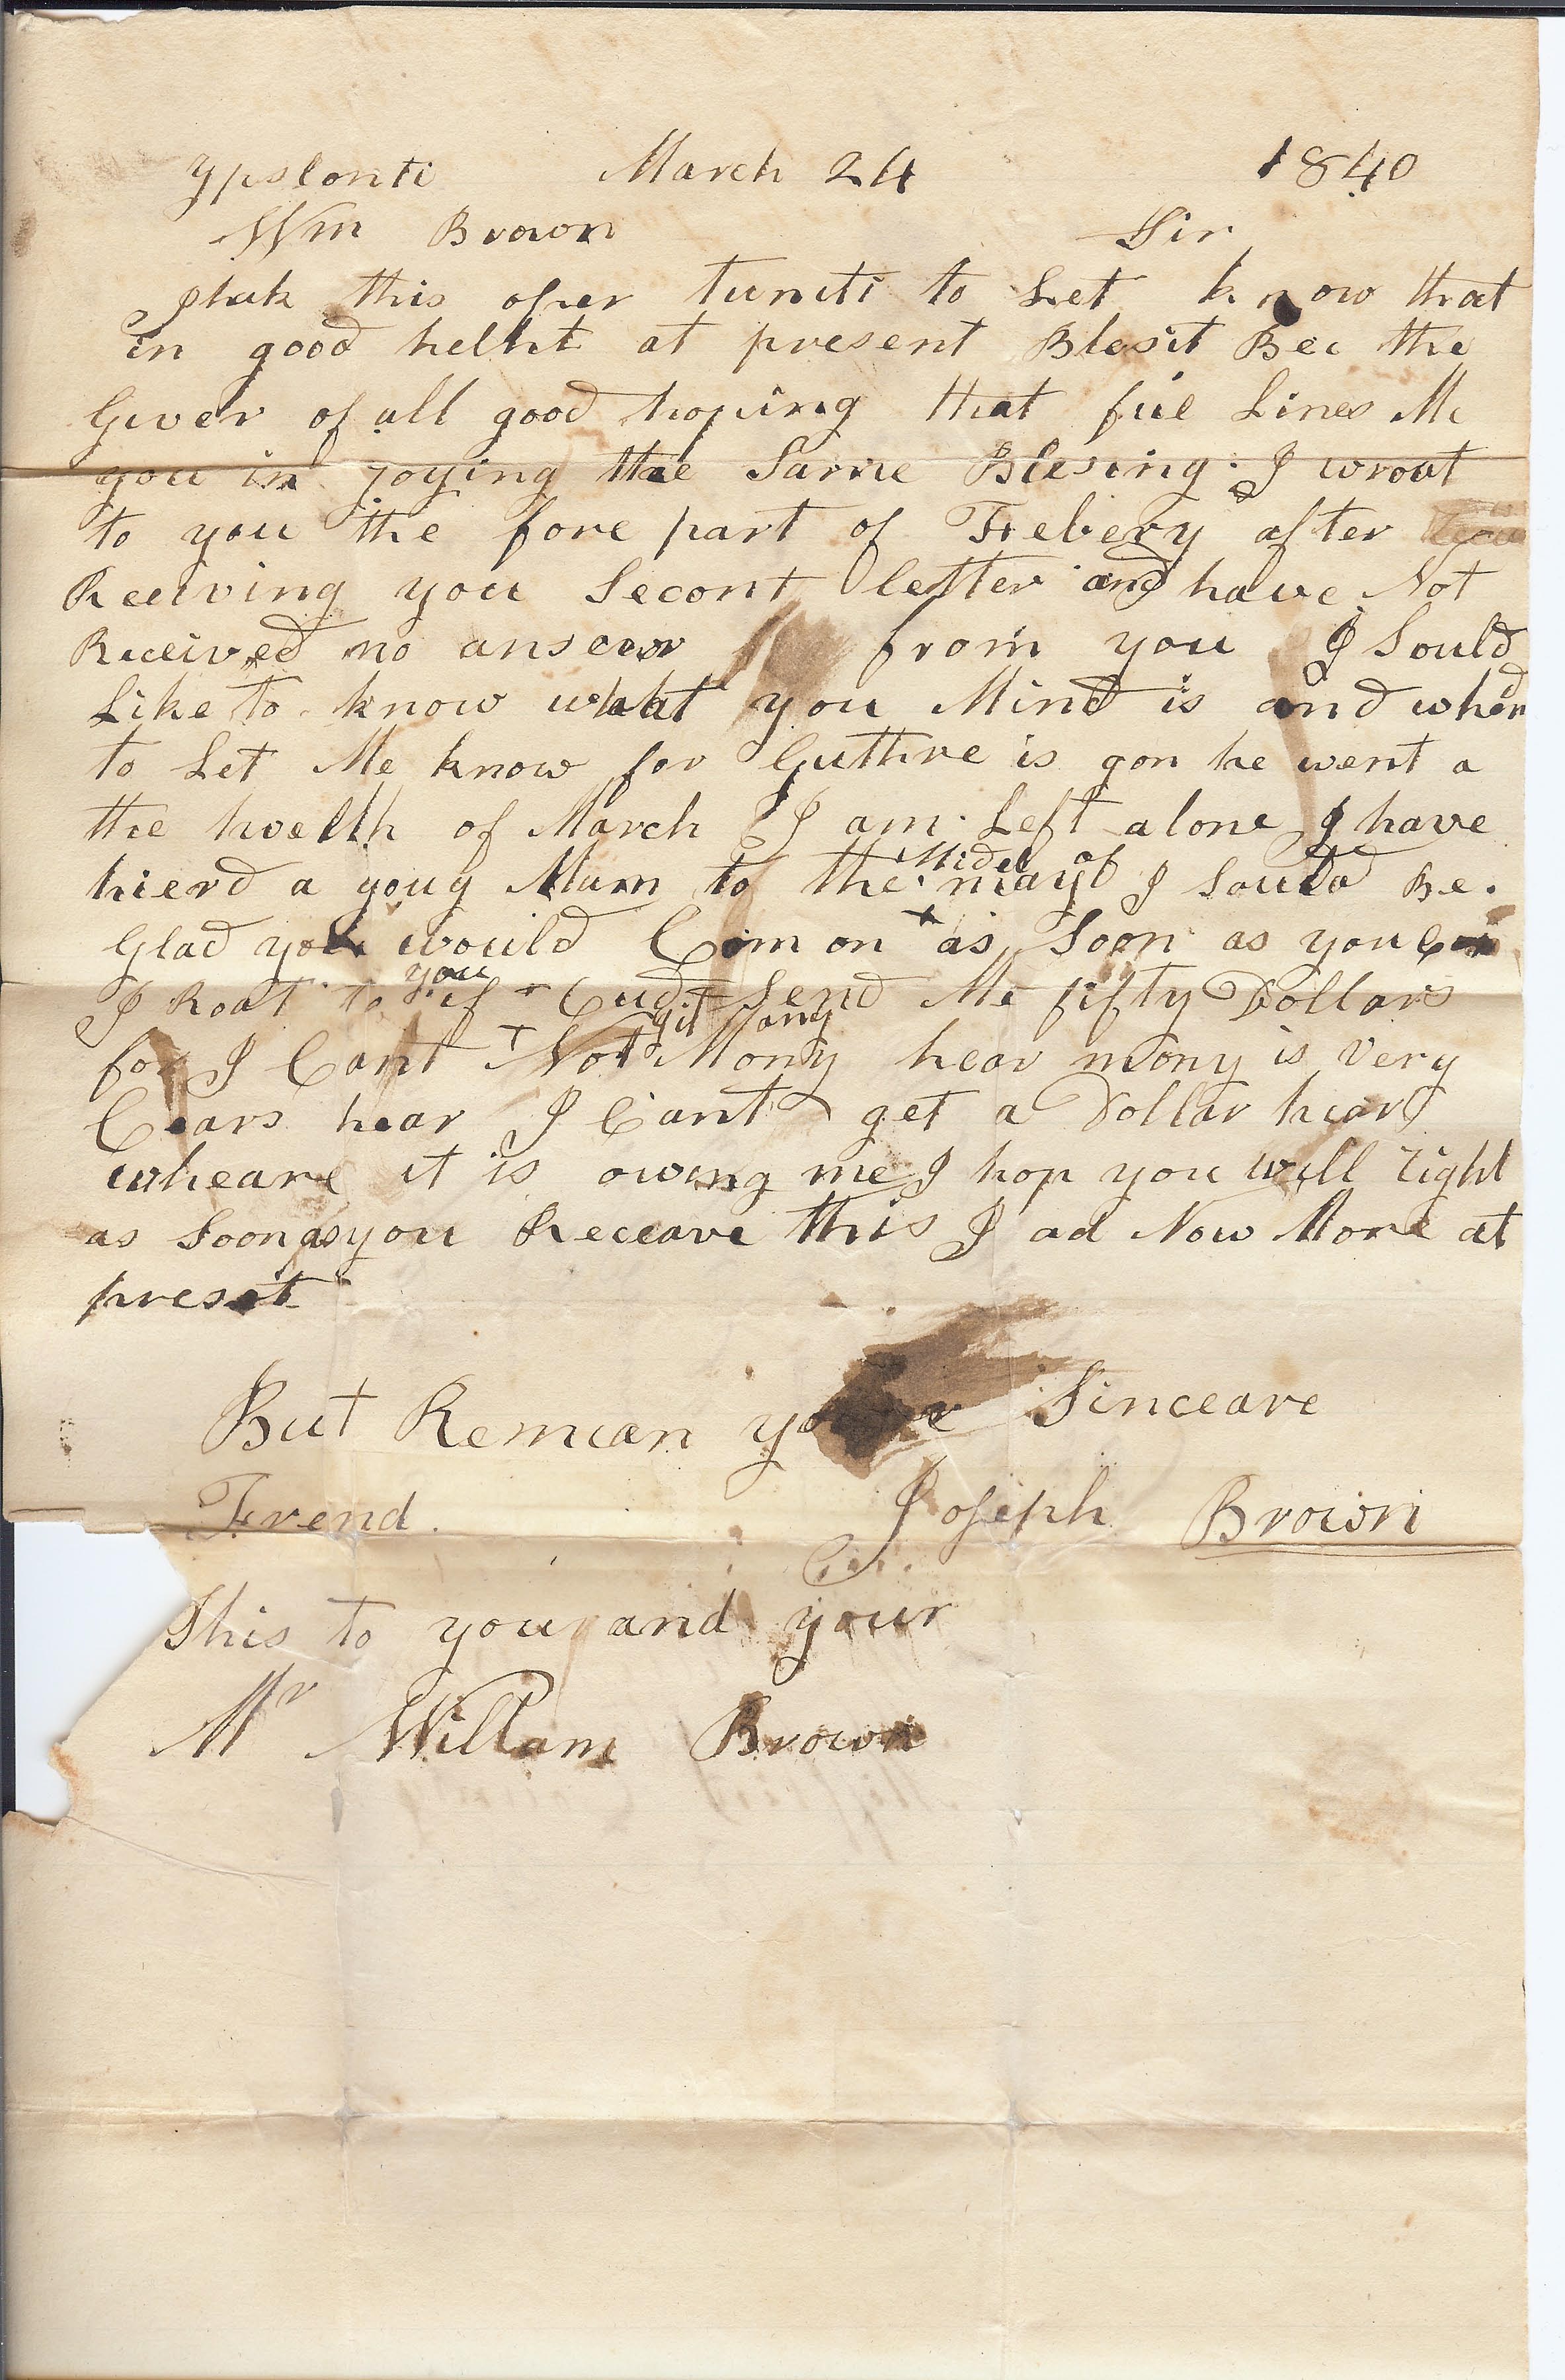 Ypslonti March 24 1840
Wm Brown Sir
I tak this oper tuniti to Let know that
in good helht at present Blesit Bee the
Giver of all good hoping that fue Lines Me
you in joying the Same Blesing I wrout
to you the fore part of Febery after
Receiving you Secont letter and have Not
Received no anser from you I Sould
Like to know what you Mind is and
to Let Me know for Guthre is gon he went a
the twelth of March I am Left alone I have
hierd a youg Mam to the Midel of may I Sould Be
Glad you would Com on as Soon as you Can
I Roat to you if Cud Send Me fifty Dollars
for I Cant Not git any Mony hear mony is very
Cears hear I Cant get a Dollar hear
wheare it is owing me I hop you will right
as Soon as you Receave this I ad Now More at
preset
But Remean Sinceare
Frend. Joseph Brown
This to you and your
Mr Willam Brown